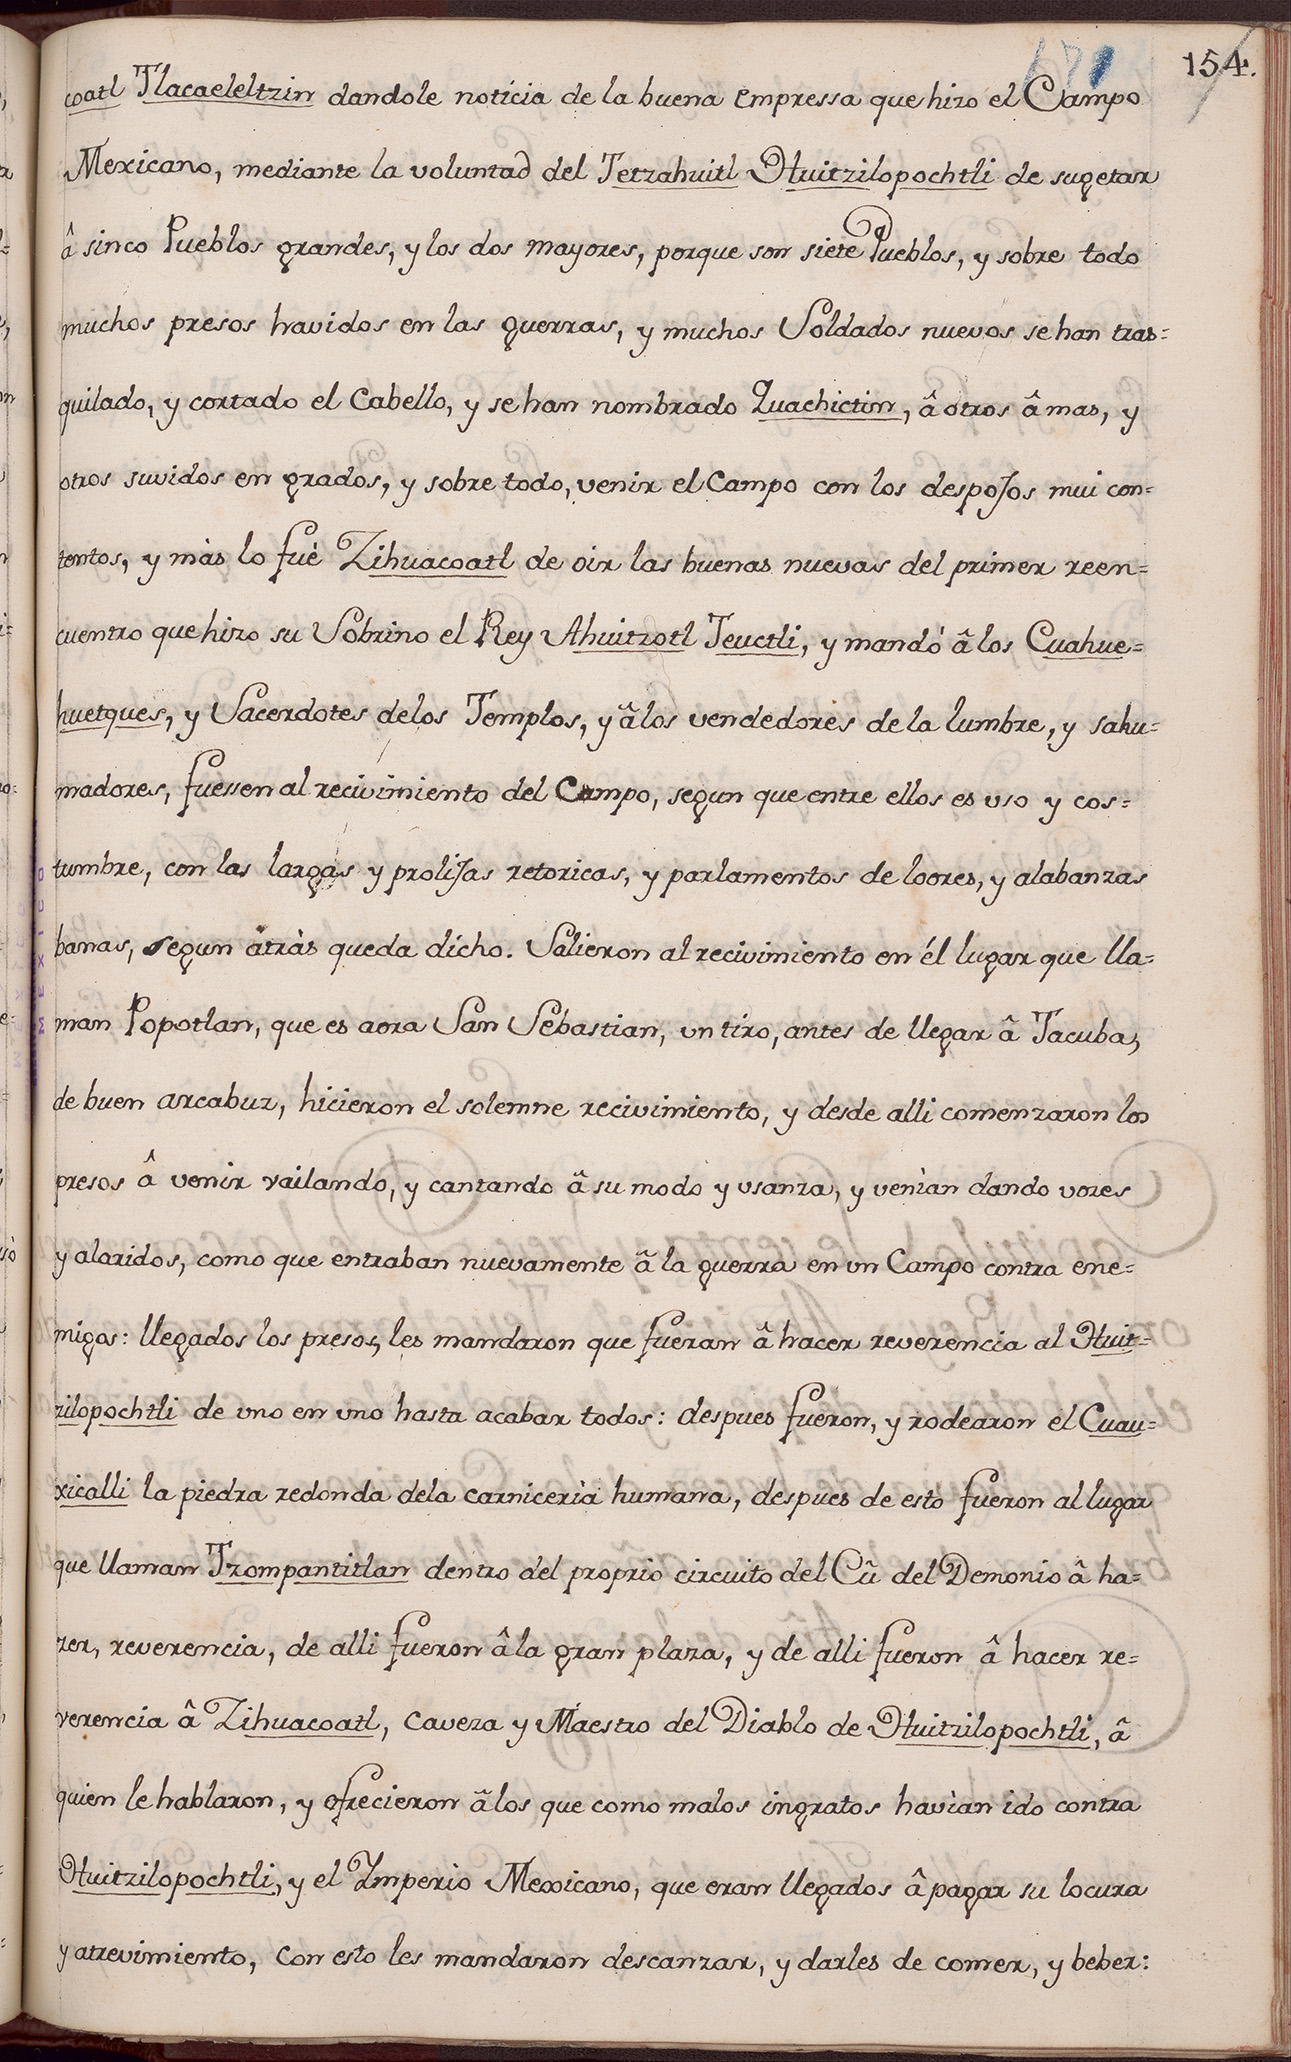 171
154.
coatl Tlacaeleltzin dandole noticia de la buena empressa que hizo el Campo
Mexicano, mediante la voluntad del Tetzahuitl Huitzilopochtli de sugetar
â sinco Pueblos grandes, y los dos mayores, porque son siete Pueblos, y sobre todo
muchos presos havidos en las guerras, y muchos Soldados nuevos se han tras=
quilado, y cortado el Cabello, y se han nombrado Quachictin, â otros â mas, y
otros suvidos en grados, y sobre todo, venir el Campo con los despoJos mui con=
tentos, y màs lo fuè Zihuacoatl de oir las buenas nuevas del primer reen=
cuentro que hizo su Sobrino el Rey Ahuitzotl Teuctli, y mandó â los Cuahue=
huetques, y Sacerdotes delos Templos, y â los vendedores de la lumbre, y sahu=
madores, fuessen al recivimiento del Campo, segun que entre ellos es uso y cos=
tumbre, con las largas y proliJas retoricas, y parlamentos de loores, y alabanzas
banas, segun atràs queda dicho. Salieron al recivimiento en él lugar que lla=
man Popotlan, que es aora San Sebastian, un tiro, antes de llegar â Tacuba,
de buen arcabuz, hicieron el solemne recivimiento, y desde alli comenzaron los
presos â venir vailando, y cantando â su modo y usanza, y venìan dando vozes
y alaridos, como que entraban nuevamente â la guerra en un Campo contra ene=
migos: llegados los presos, les mandaron que fueran â hacer reverencia al Huit=
zilopochtli de uno en uno hasta acabar todos: despues fueron, y rodearon el Cuau=
xicalli la piedra redonda dela carnicerìa humana, despues de esto fueron al lugar
que llaman Tzompantitlan dentro del proprio circuito del Cû del Demonio â ha=
zer, reverencia, de alli fueron â la gran plaza, y de alli fueron â hacer re=
verencia â Zihuacoatl, Caveza y Maestro del Diablo de Huitzilopochtli, â
quien le hablaron, y ofrecieron â los que como malos ingratos havìan ido contra
Huitzilopochtli, y el Imperio Mexicano, que eran llegados â pagar su locura
y atrevimiento, con esto les mandaron descanzar, y darles de comer, y beber: